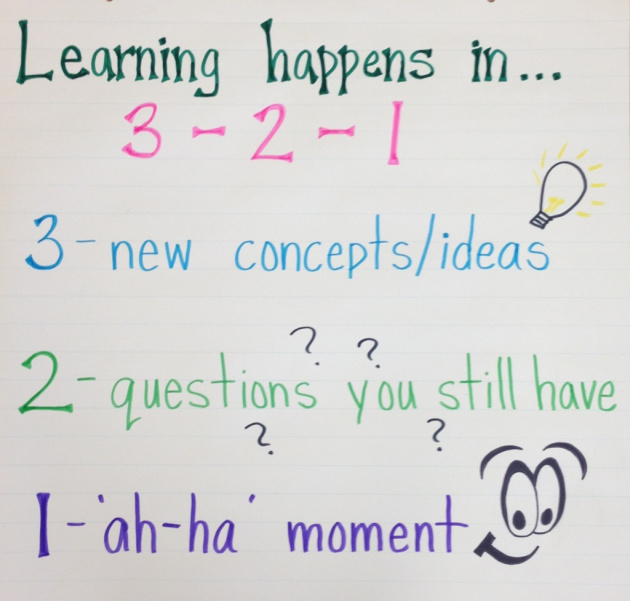 Learning happens in...
3 - 2 - 1
3 - new concepts/ideas
? ?
2 - questions you still have
? ?
1 - 'ah-ha' moment